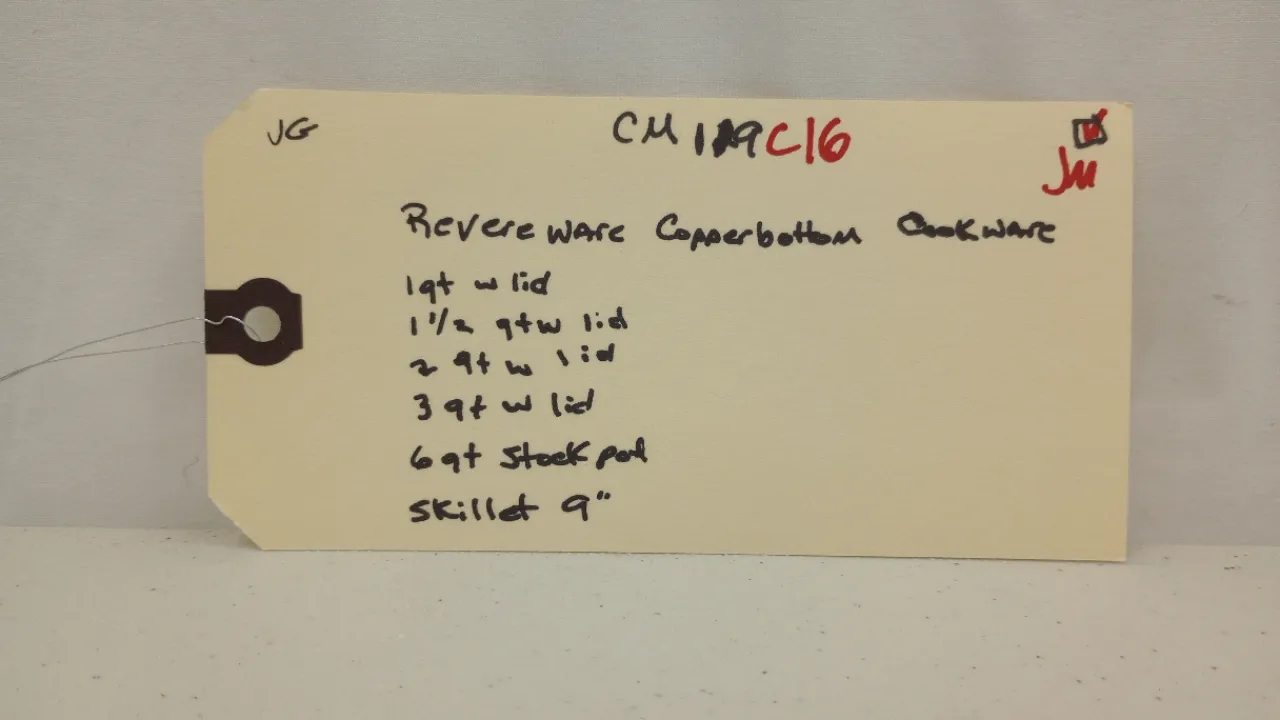 JG
CM 119 C16
JM
Revereware Copperbottom Cookware
1 qt w lid
1 1/2 qt w lid
2 qt w lid
3 qt w lid
6 qt Stock pot
Skillet 9"